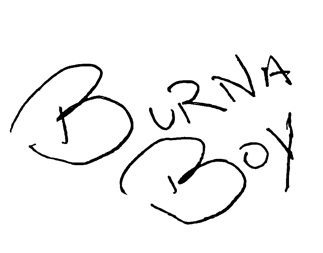 BURNA
BOY